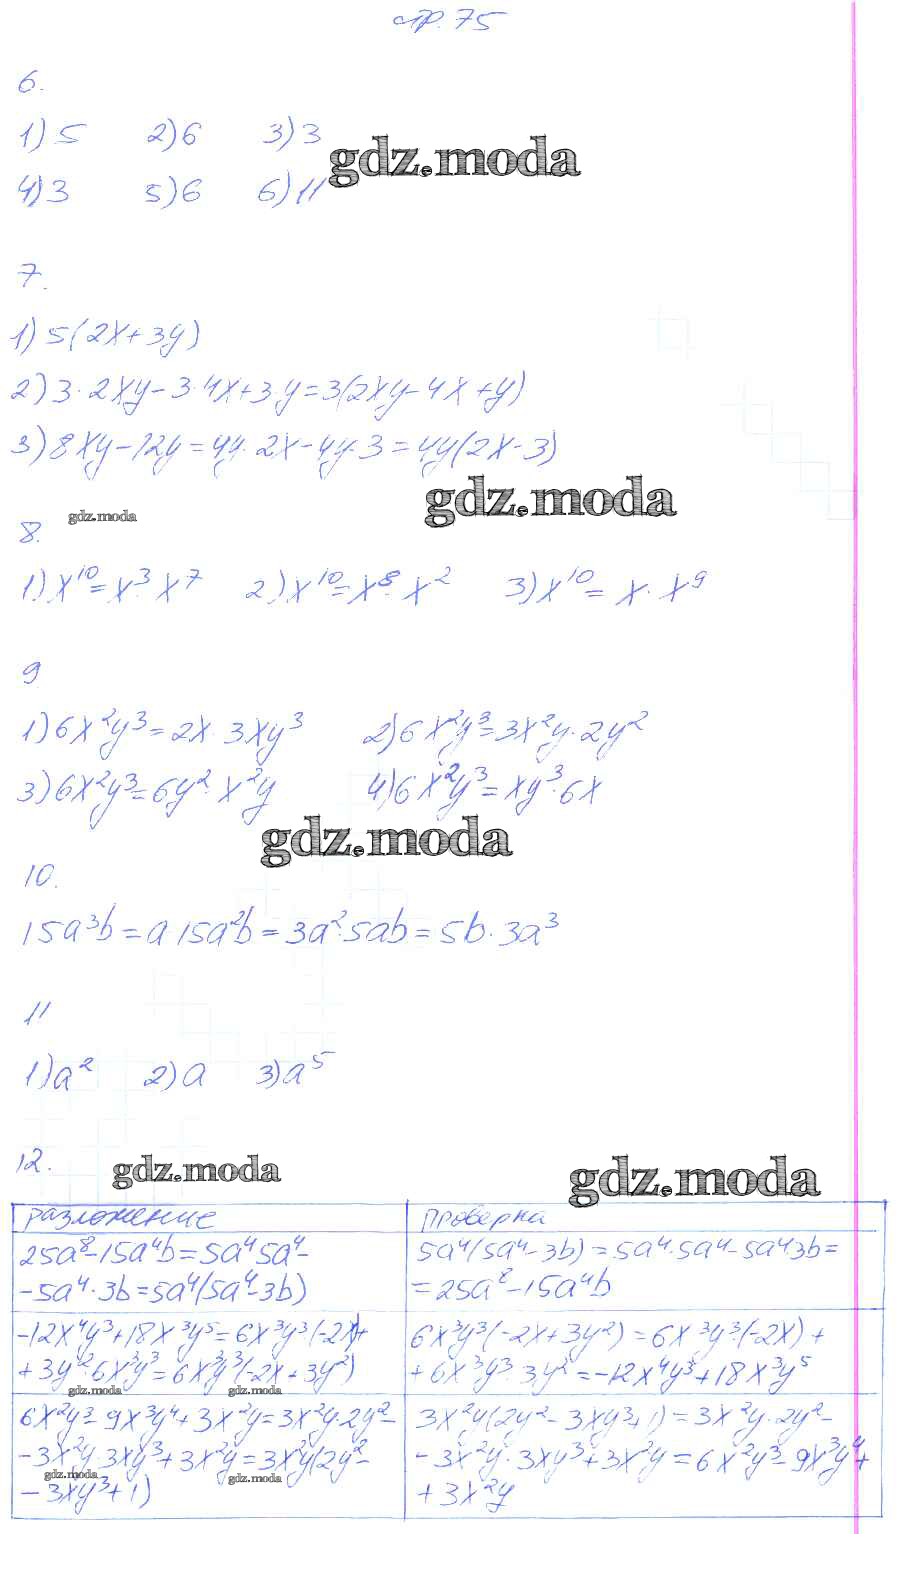 стр. 75
6.
1) 5 2) 6 3) 3
gdz.moda
4) 3 5) 6 6) 11
7.
1) 5(2x+3y)
2) 3·2xy-3·4x+3·y=3(2xy-4x+y)
3) 8xy-12y=4y·2x-4y·3=4y(2x-3)
gdz.moda
gdz.moda
8.
1) x¹⁰=x³·x⁷ 2) x¹⁰=x⁸·x² 3) x¹⁰=x·x⁹
9
1) 6x²y³=2x·3xy³ 2) 6x²y³=3x²y·2y²
3) 6x²y³=6y²·x²y 4) 6x²y³=xy³·6x
gdz.moda
10.
15a³b=a·15a²b=3a²·5ab=5b·3a³
11
1) a² 2) a 3) a⁵
12.
gdz.moda
gdz.moda
разложение проверка
25a⁸-15a⁴b=5a⁴·5a⁴-
-5a⁴·3b=5a⁴(5a⁴-3b)
5a⁴(5a⁴-3b)=5a⁴·5a⁴-5a⁴·3b=
=25a⁸-15a⁴b
-12x⁴y³+18x³y⁵=6x³y³(-2x)+
+3y²·6x³y³=6x³y³(-2x+3y²)
gdz.moda gdz.moda
6x³y³(-2x+3y²)=6x³y³·(-2x)+
+6x³y³·3y²=-12x⁴y³+18x³y⁵
6x²y³-9x³y⁴+3x²y=3x²y·2y²-
-3x²y·3xy³+3x²y=3x²y(2y²-
-3xy³+1)
gdz.moda gdz.moda
3x²y(2y²-3xy³+1)=3x²y·2y²-
-3x²y·3xy³+3x²y=6x²y³-9x³y⁴+
+3x²y